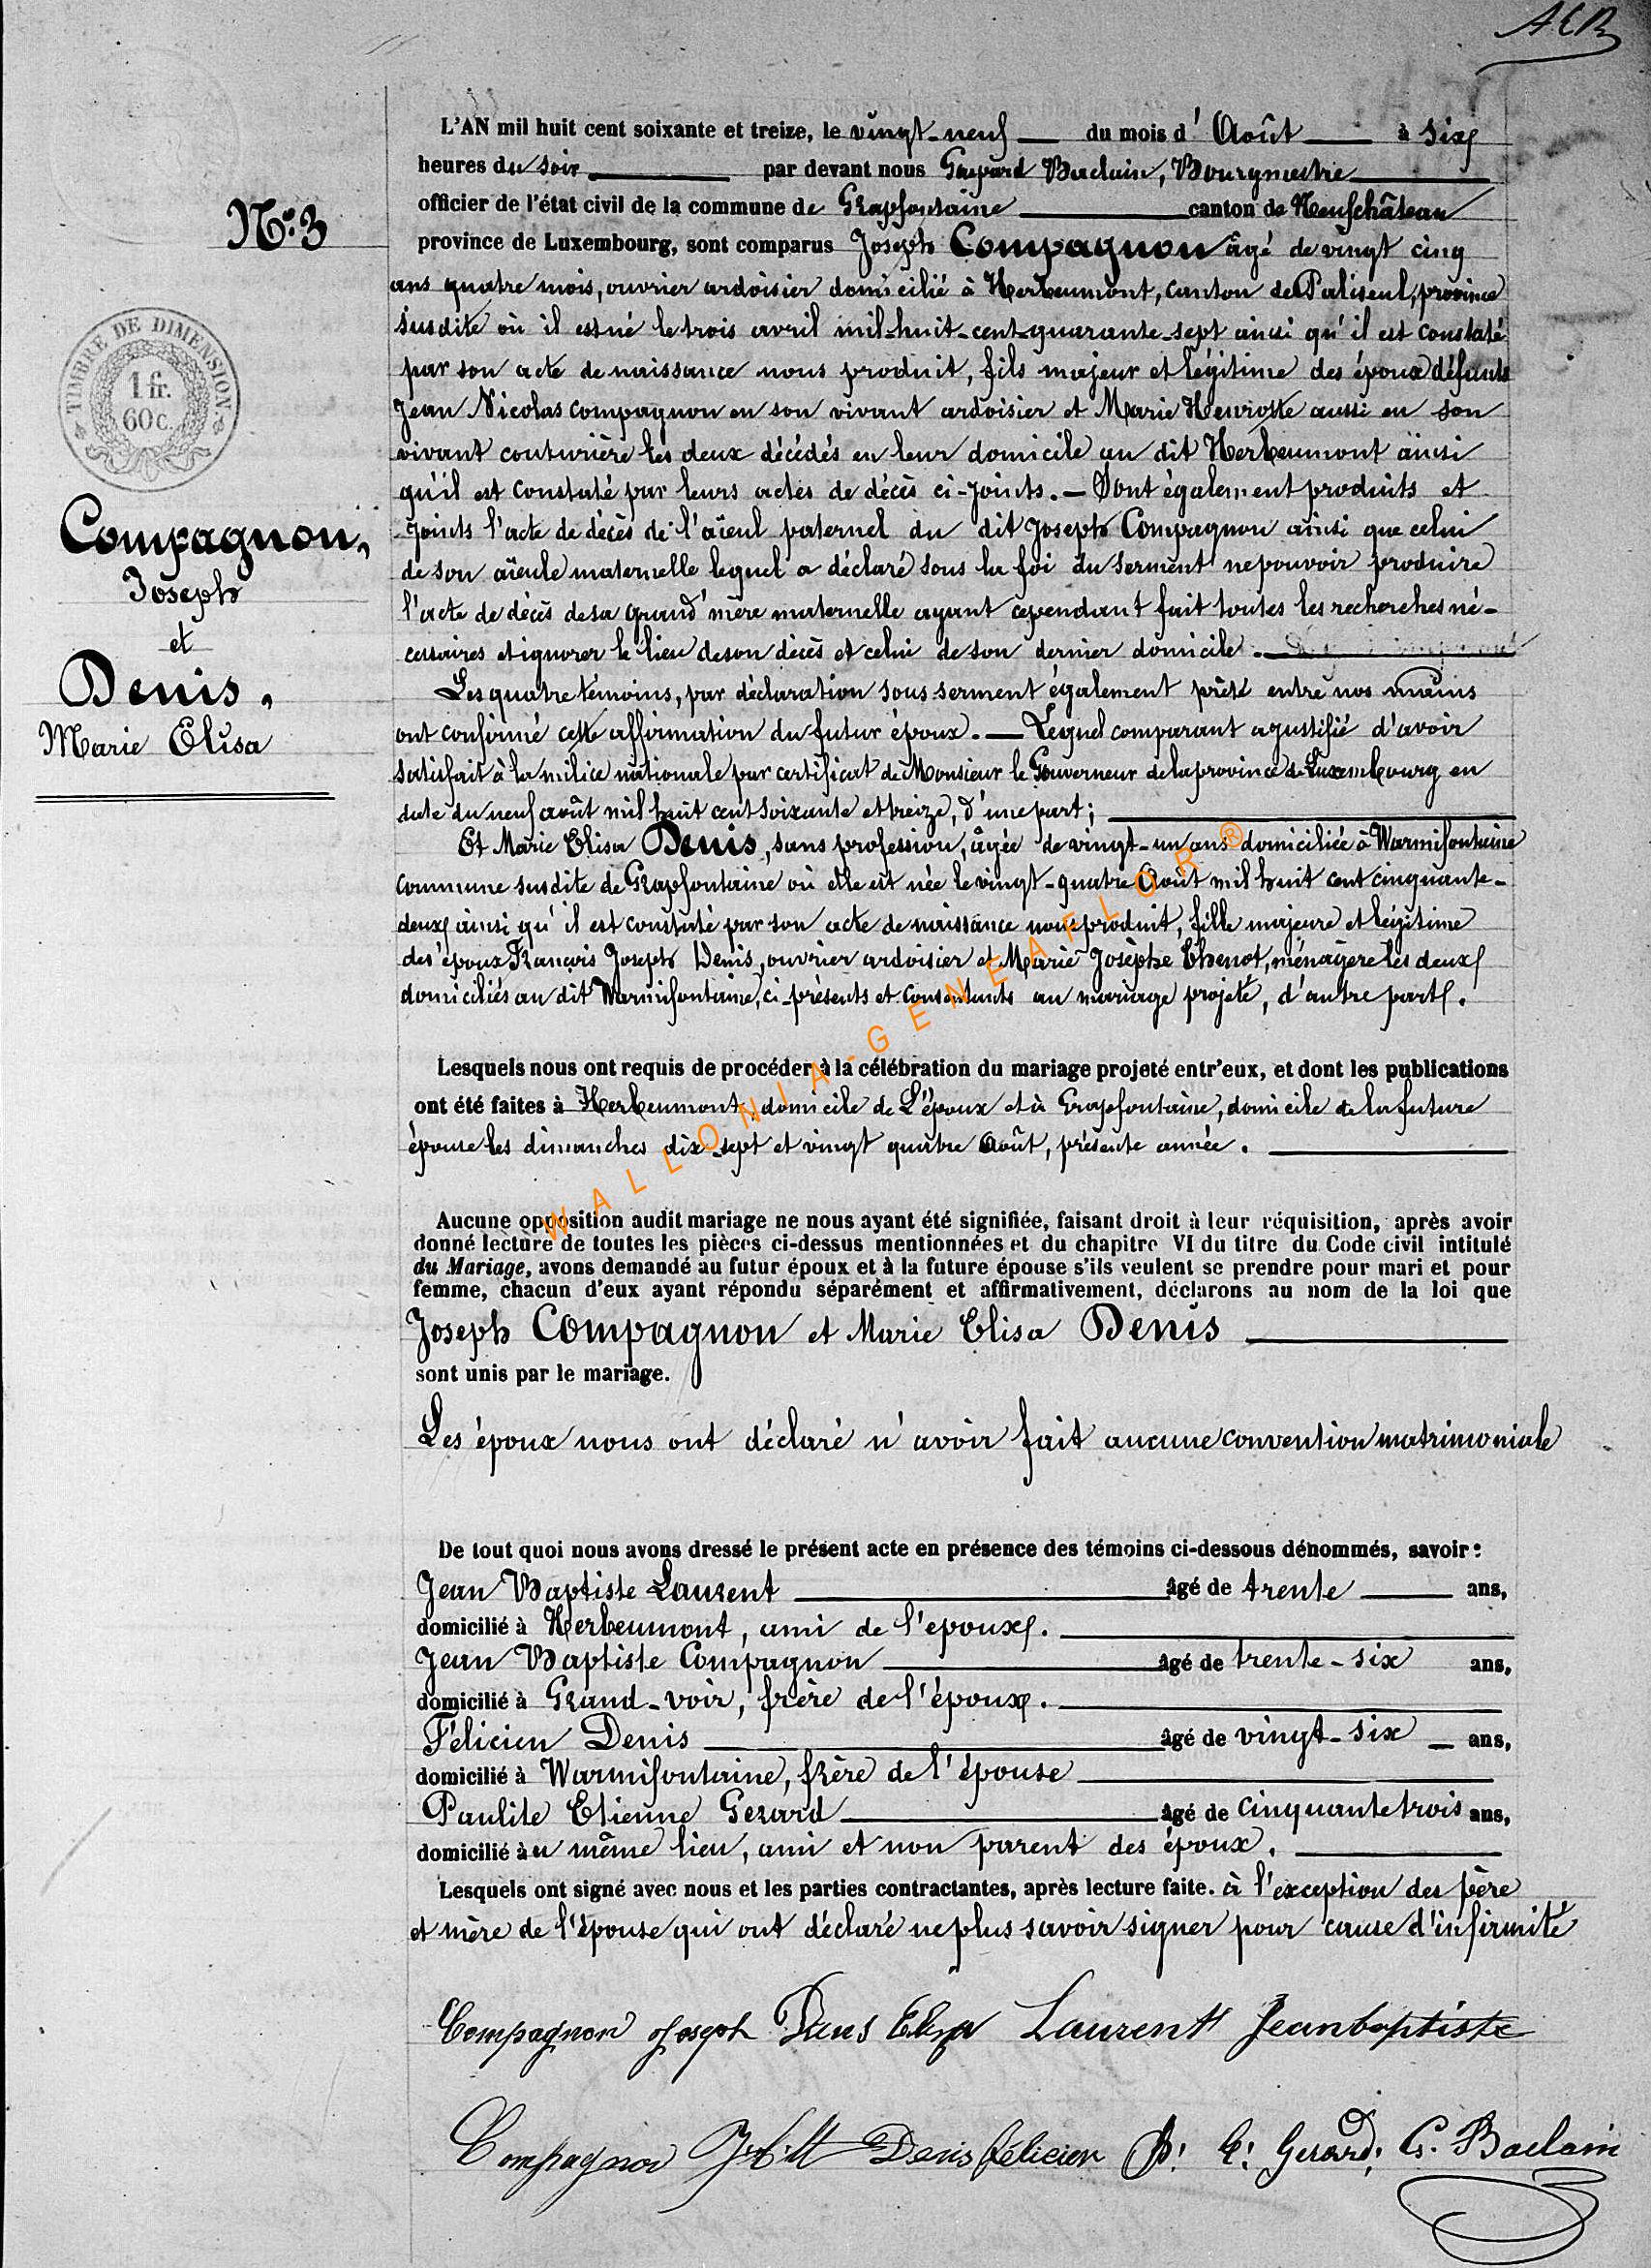 ACB
L'AN mil huit cent soixante et treize, le vingt-neuf du mois d'Août à six
heures du soir par devant nous Gaspard Baclain, Bourgmestre
officier de l'état civil de la commune de Grapfontaine canton de Neufchâteau
province de Luxembourg, sont comparus Joseph Compagnon âgé de vingt cinq
ans quatre mois, ouvrier ardoisier domicilié à Herbeumont, canton de Paliseul, province
susdite où il est né le trois avril mil-huit-cent-quarante-sept ainsi qu'il est constaté
par son acte de naissance nous produit, fils majeur et légitime des époux défunts
Jean Nicolas Compagnon en son vivant ardoisier et Marie Henriotte aussi en son
vivant couturière les deux décédés en leur domicile au dit Herbeumont ainsi
qu'il est constaté par leurs actes de décès ci-joints. — Sont également produits et
joints l'acte de décès de l'aïeul paternel du dit Joseph Compagnon ainsi que celui
de son aïeule maternelle lequel a déclaré sous la foi du serment ne pouvoir produire
l'acte de décès de sa grand'mère maternelle ayant cependant fait toutes les recherches né-
cessaires et ignorer le lieu de son décès et celui de son dernier domicile.
Les quatre témoins, par déclaration sous serment également prêté entre nos mains
ont confirmé cette affirmation du futur époux. — Lequel comparant a justifié d'avoir
satisfait à la milice nationale par certificat de Monsieur le Gouverneur de la province de Luxembourg en
date du neuf août mil huit cent soixante et treize, d'une part;
Et Marie Elisa Denis, sans profession, âgée de vingt-un ans domiciliée à Warmifontaine
commune susdite de Grapfontaine où elle est née le vingt-quatre Août mil huit cent cinquante-
deux ainsi qu'il est constaté par son acte de naissance nous produit, fille majeure et légitime
des époux François Joseph Denis, ouvrier ardoisier et Marie Josèphe Thenot, ménagère les deux
domiciliés au dit Warmifontaine, ci-présents et consentants au mariage projeté, d'autre part.
Lesquels nous ont requis de procéder à la célébration du mariage projeté entr'eux, et dont les publications
ont été faites à Herbeumont, domicile de l'époux et à Grapfontaine, domicile de la future
épouse les dimanches dix-sept et vingt quatre Août, présente année.
Aucune opposition audit mariage ne nous ayant été signifiée, faisant droit à leur réquisition, après avoir
donné lecture de toutes les pièces ci-dessus mentionnées et du chapitre VI du titre du Code civil intitulé
du Mariage, avons demandé au futur époux et à la future épouse s'ils veulent se prendre pour mari et pour
femme, chacun d'eux ayant répondu séparément et affirmativement, déclarons au nom de la loi que
Joseph Compagnon et Marie Elisa Denis
sont unis par le mariage.
Les époux nous ont déclaré n'avoir fait aucune convention matrimoniale
De tout quoi nous avons dressé le présent acte en présence des témoins ci-dessous dénommés, savoir :
Jean Baptiste Laurent âgé de trente ans,
domicilié à Herbeumont, ami de l'époux.
Jean Baptiste Compagnon âgé de trente-six ans,
domicilié à Grand-voir, frère de l'époux.
Félicien Denis âgé de vingt-six ans,
domicilié à Warmifontaine, frère de l'épouse
Paulite Etienne Gerard âgé de cinquante trois ans,
domicilié au même lieu, ami et non parent des époux.
Lesquels ont signé avec nous et les parties contractantes, après lecture faite. à l'exception des père
et mère de l'épouse qui ont déclaré ne plus savoir signer pour cause d'infirmité
Compagnon Joseph Denis Elisa Laurent Jeanbaptiste
Compagnon Denis félicien P. E. Gerard; G. Baclain
No. 3
TIMBRE DE DIMENSION.
1 fr.
60 c.
Compagnon,
Joseph
et
Denis,
Marie Elisa
WALLONIA-GENEAFLOR®